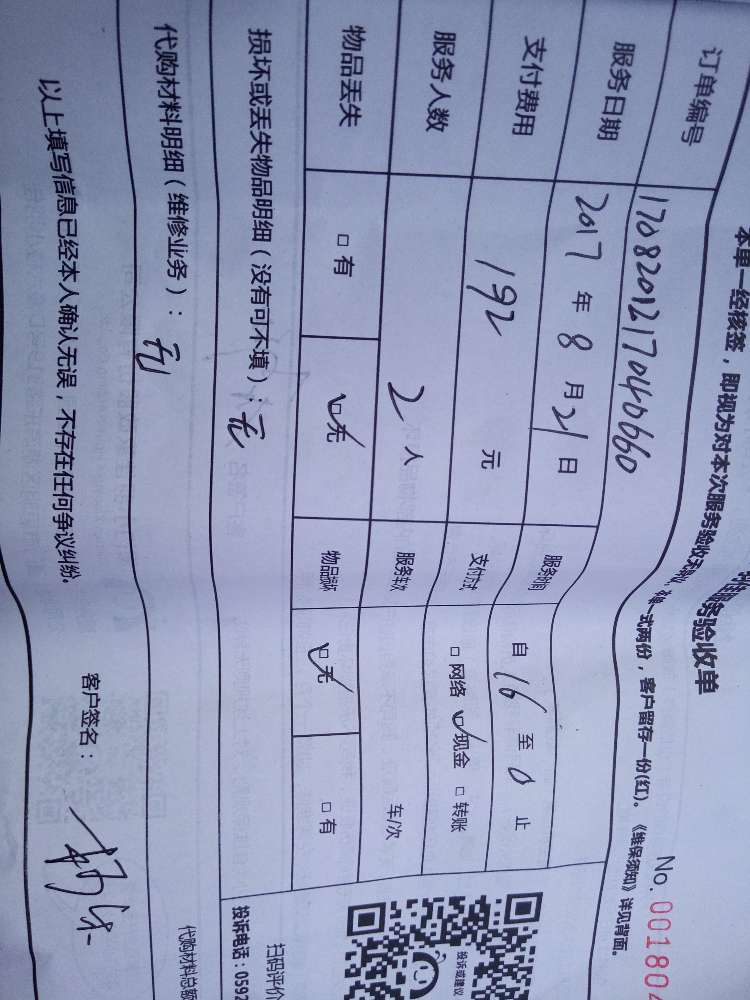 服务验收单
No. 00180
本单一经核签，即视为对本次服务验收无误，本单一式两份，客户留存一份(红)。《维保须知》详见背面。
订单编号 1708201217040660
服务日期 2017 年 8 月 21 日 服务时间 自 16 至 止
支付费用 192 元 支付方式 □ 网络 ☑ 现金 □ 转账
服务人数 2 人 服务车次 车/次
物品丢失 □ 有 ☑ 无 物品损坏 ☑ 无 □ 有
损坏或丢失物品明细（没有可不填）：无
代购材料明细（维修业务）：无 代购材料总额
以上填写信息已经本人确认无误，不存在任何争议纠纷。 客户签名：
投诉或建议
扫码评价
投诉电话：0592